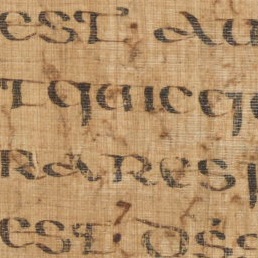 est· au
t quicqu
raresp
est· ds